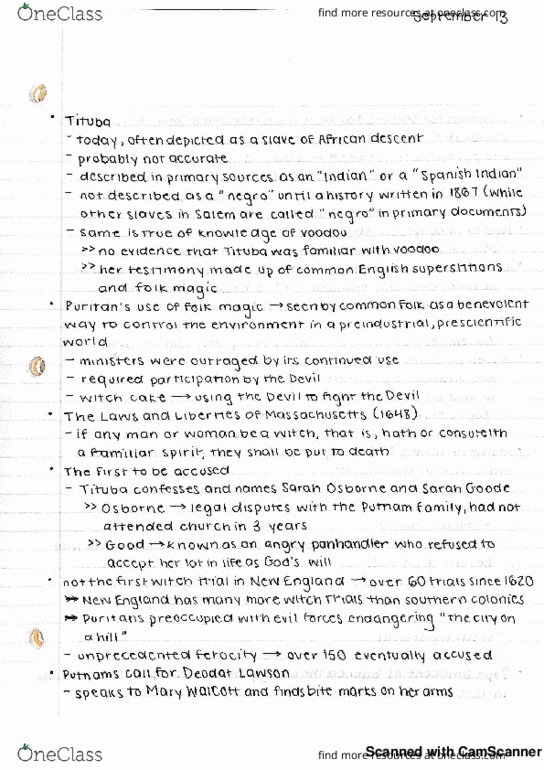 OneClass
find more resources at oneclass.com
September 13
• Tituba
- today, often depicted as a slave of African descent
- probably not accurate
- described in primary sources as an "Indian" or a "Spanish Indian"
- not described as a "negro" until a history written in 1867 (while
other slaves in Salem are called "negro" in primary documents)
- same is true of knowledge of voodou
>> no evidence that Tituba was familiar with voodoo
>> her testimony made up of common English superstitions
and folk magic
• Puritan's use of folk magic → seen by common folk as a benevolent
way to control the environment in a preindustrial, prescientific
world
- ministers were outraged by its continued use
- required participation by the Devil
- witch cake → using the Devil to fight the Devil
• The Laws and Liberties of Massachusetts (1648)
- if any man or woman be a witch, that is, hath or consulteth
a familiar spirit, they shall be put to death
• The first to be accused
- Tituba confesses and names Sarah Osborne and Sarah Goode
>> Osborne → legal disputes with the Putnam family, had not
attended church in 3 years
>> Good → known as an angry panhandler who refused to
accept her lot in life as God's will
• not the first witch trial in New England → over 60 trials since 1620
↠ New England has many more witch trials than southern colonies
↠ Puritans preoccupied with evil forces endangering "the city on
a hill"
- unprecedented ferocity → over 150 eventually accused
• Putnams call for Deodat Lawson
- speaks to Mary Walcott and finds bite marks on her arms
OneClass
find more resources at oneclass.com
Scanned with CamScanner